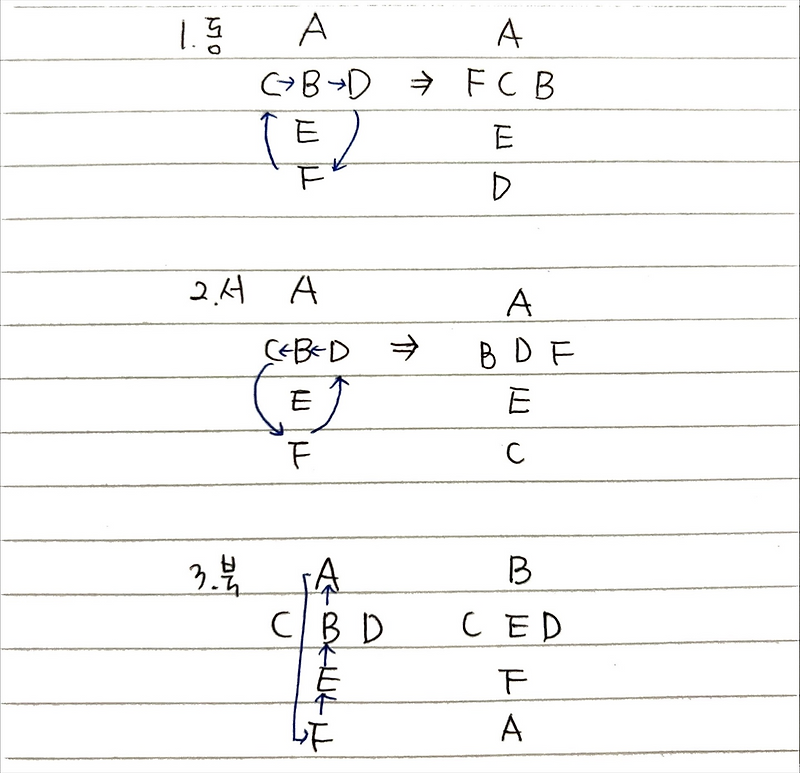 1.동 A A
C→B→D ⇒ F C B
E E
F D
2.서 A A
C←B←D ⇒ B D F
E E
F C
3.북 A B
C B D C E D
E F
F A